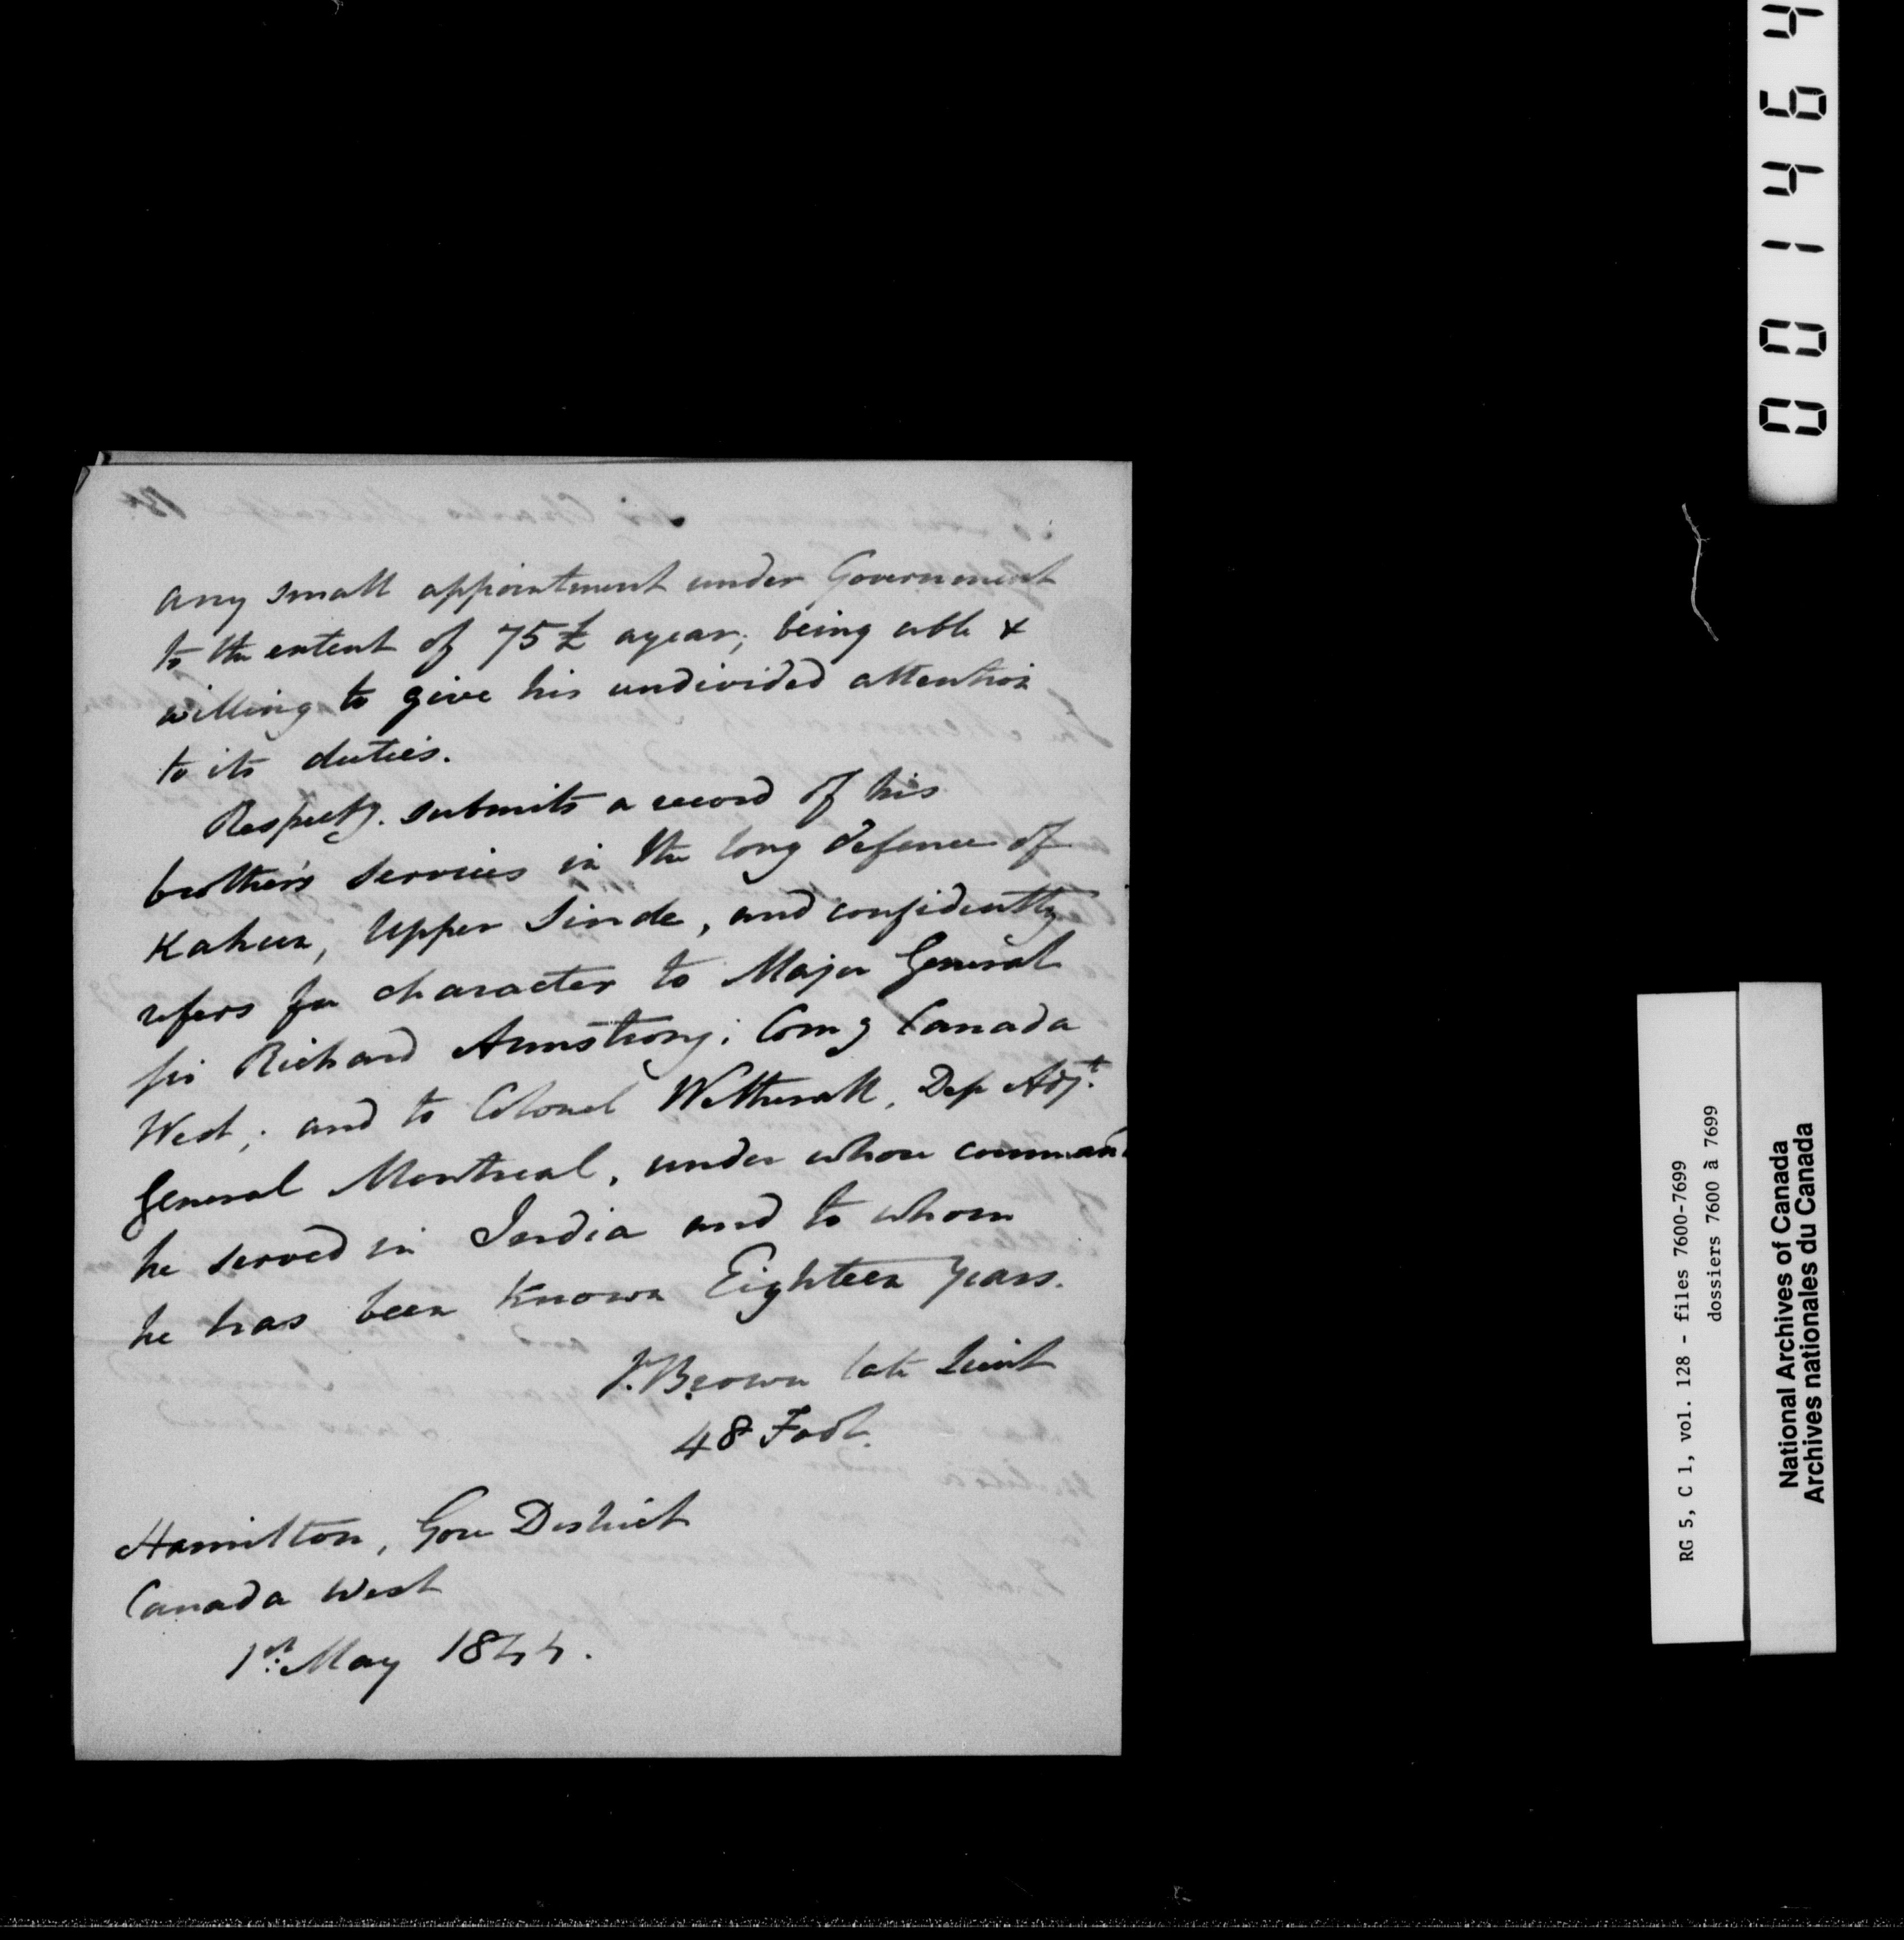 any small appointment under Government
to the extent of 75£ a year; being able &
willing to give his undivided attention
to its duties.
Respectfy. submits a record of his
brother's services in the long defence of
Kahun, Upper Sinde, and confidently
refers for character to Major General
Sir Richard Armstrong; Comg Canada
West; and to Colonel Wetherall, Dep Adjt.
General Montreal, under whose command
he served in India and to whom
he has been Known Eighteen Years.
J. Brown late Lieut
48 Foot.
Hamilton, Gore District
Canada West
1st. May 1844.
001464
RG 5, C 1, vol. 128 - files 7600-7699
dossiers 7600 à 7699
National Archives of Canada
Archives nationales du Canada